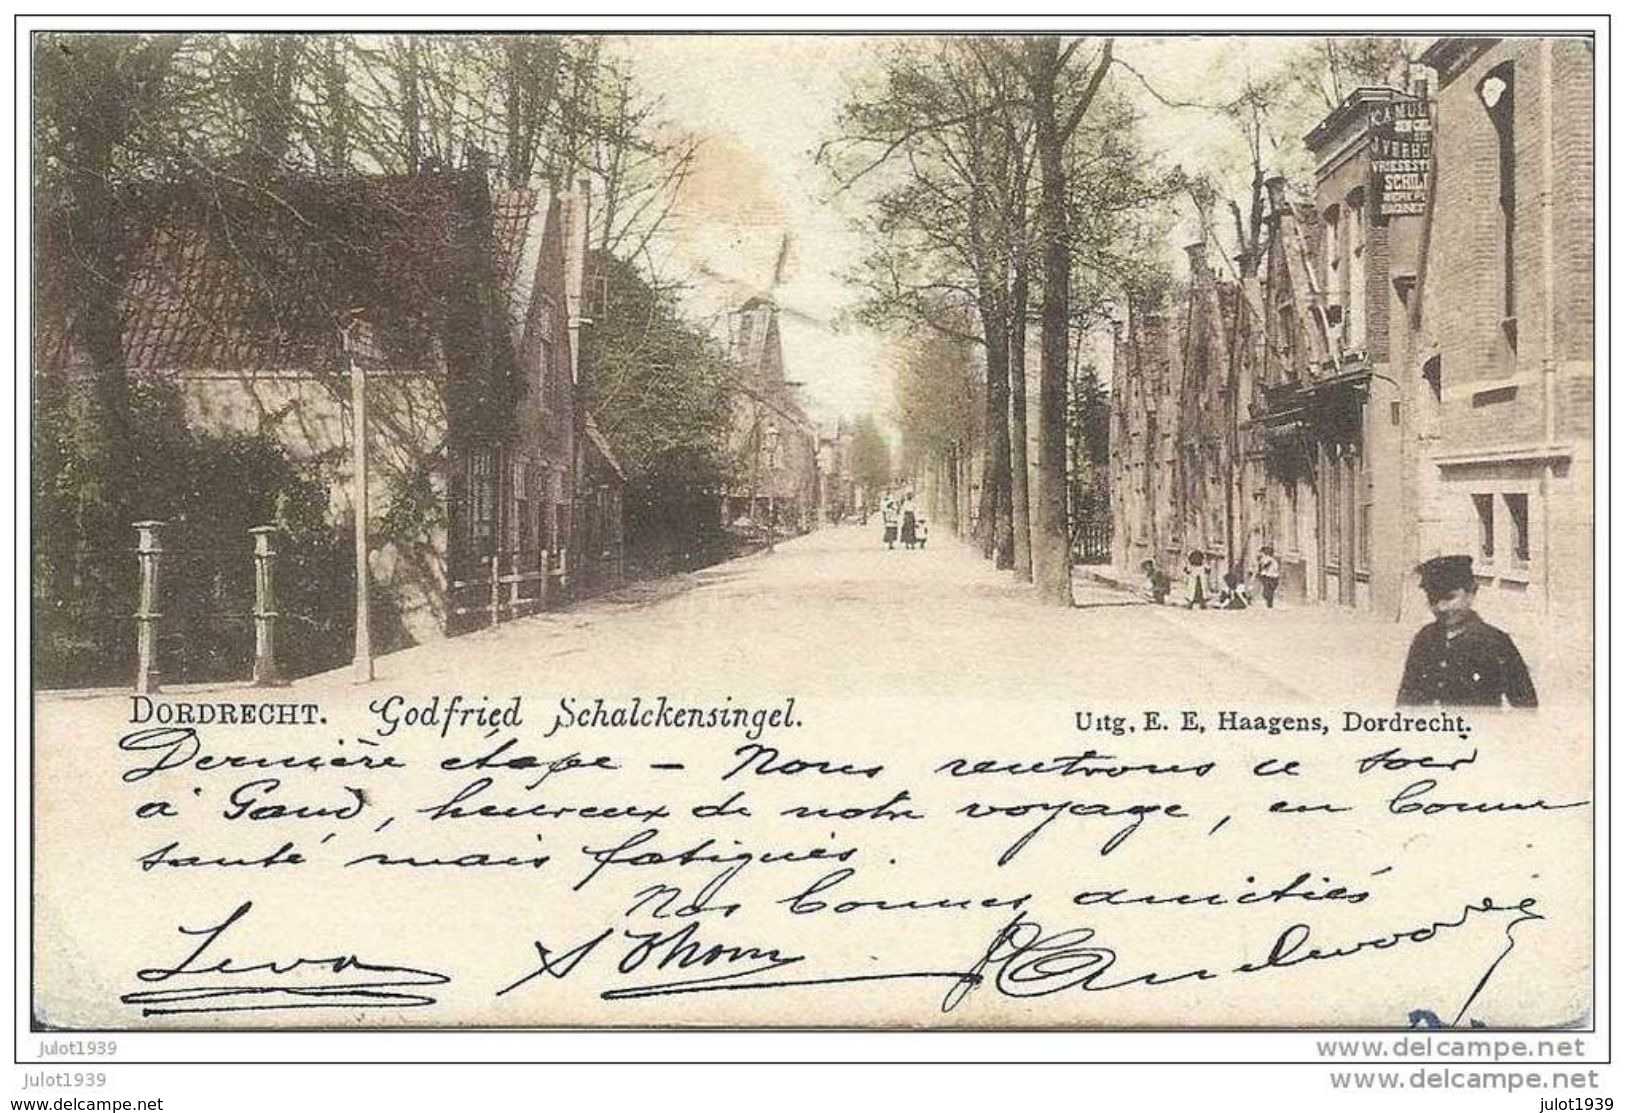 K.A MUL
J VERHO
VRIESEST
SCHIL
DORDRECHT. Godfried Schalckensingel.
Uitg. E. E. Haagens, Dordrecht.
Dernière étape – Nous rentrons ce soir
à Gand, heureux de notre voyage, en bonne
santé mais fatigués.
Nos bonnes amitiés
julot1939
www.delcampe.net
julot1939
www.delcampe.net
www.delcampe.net
julot1939